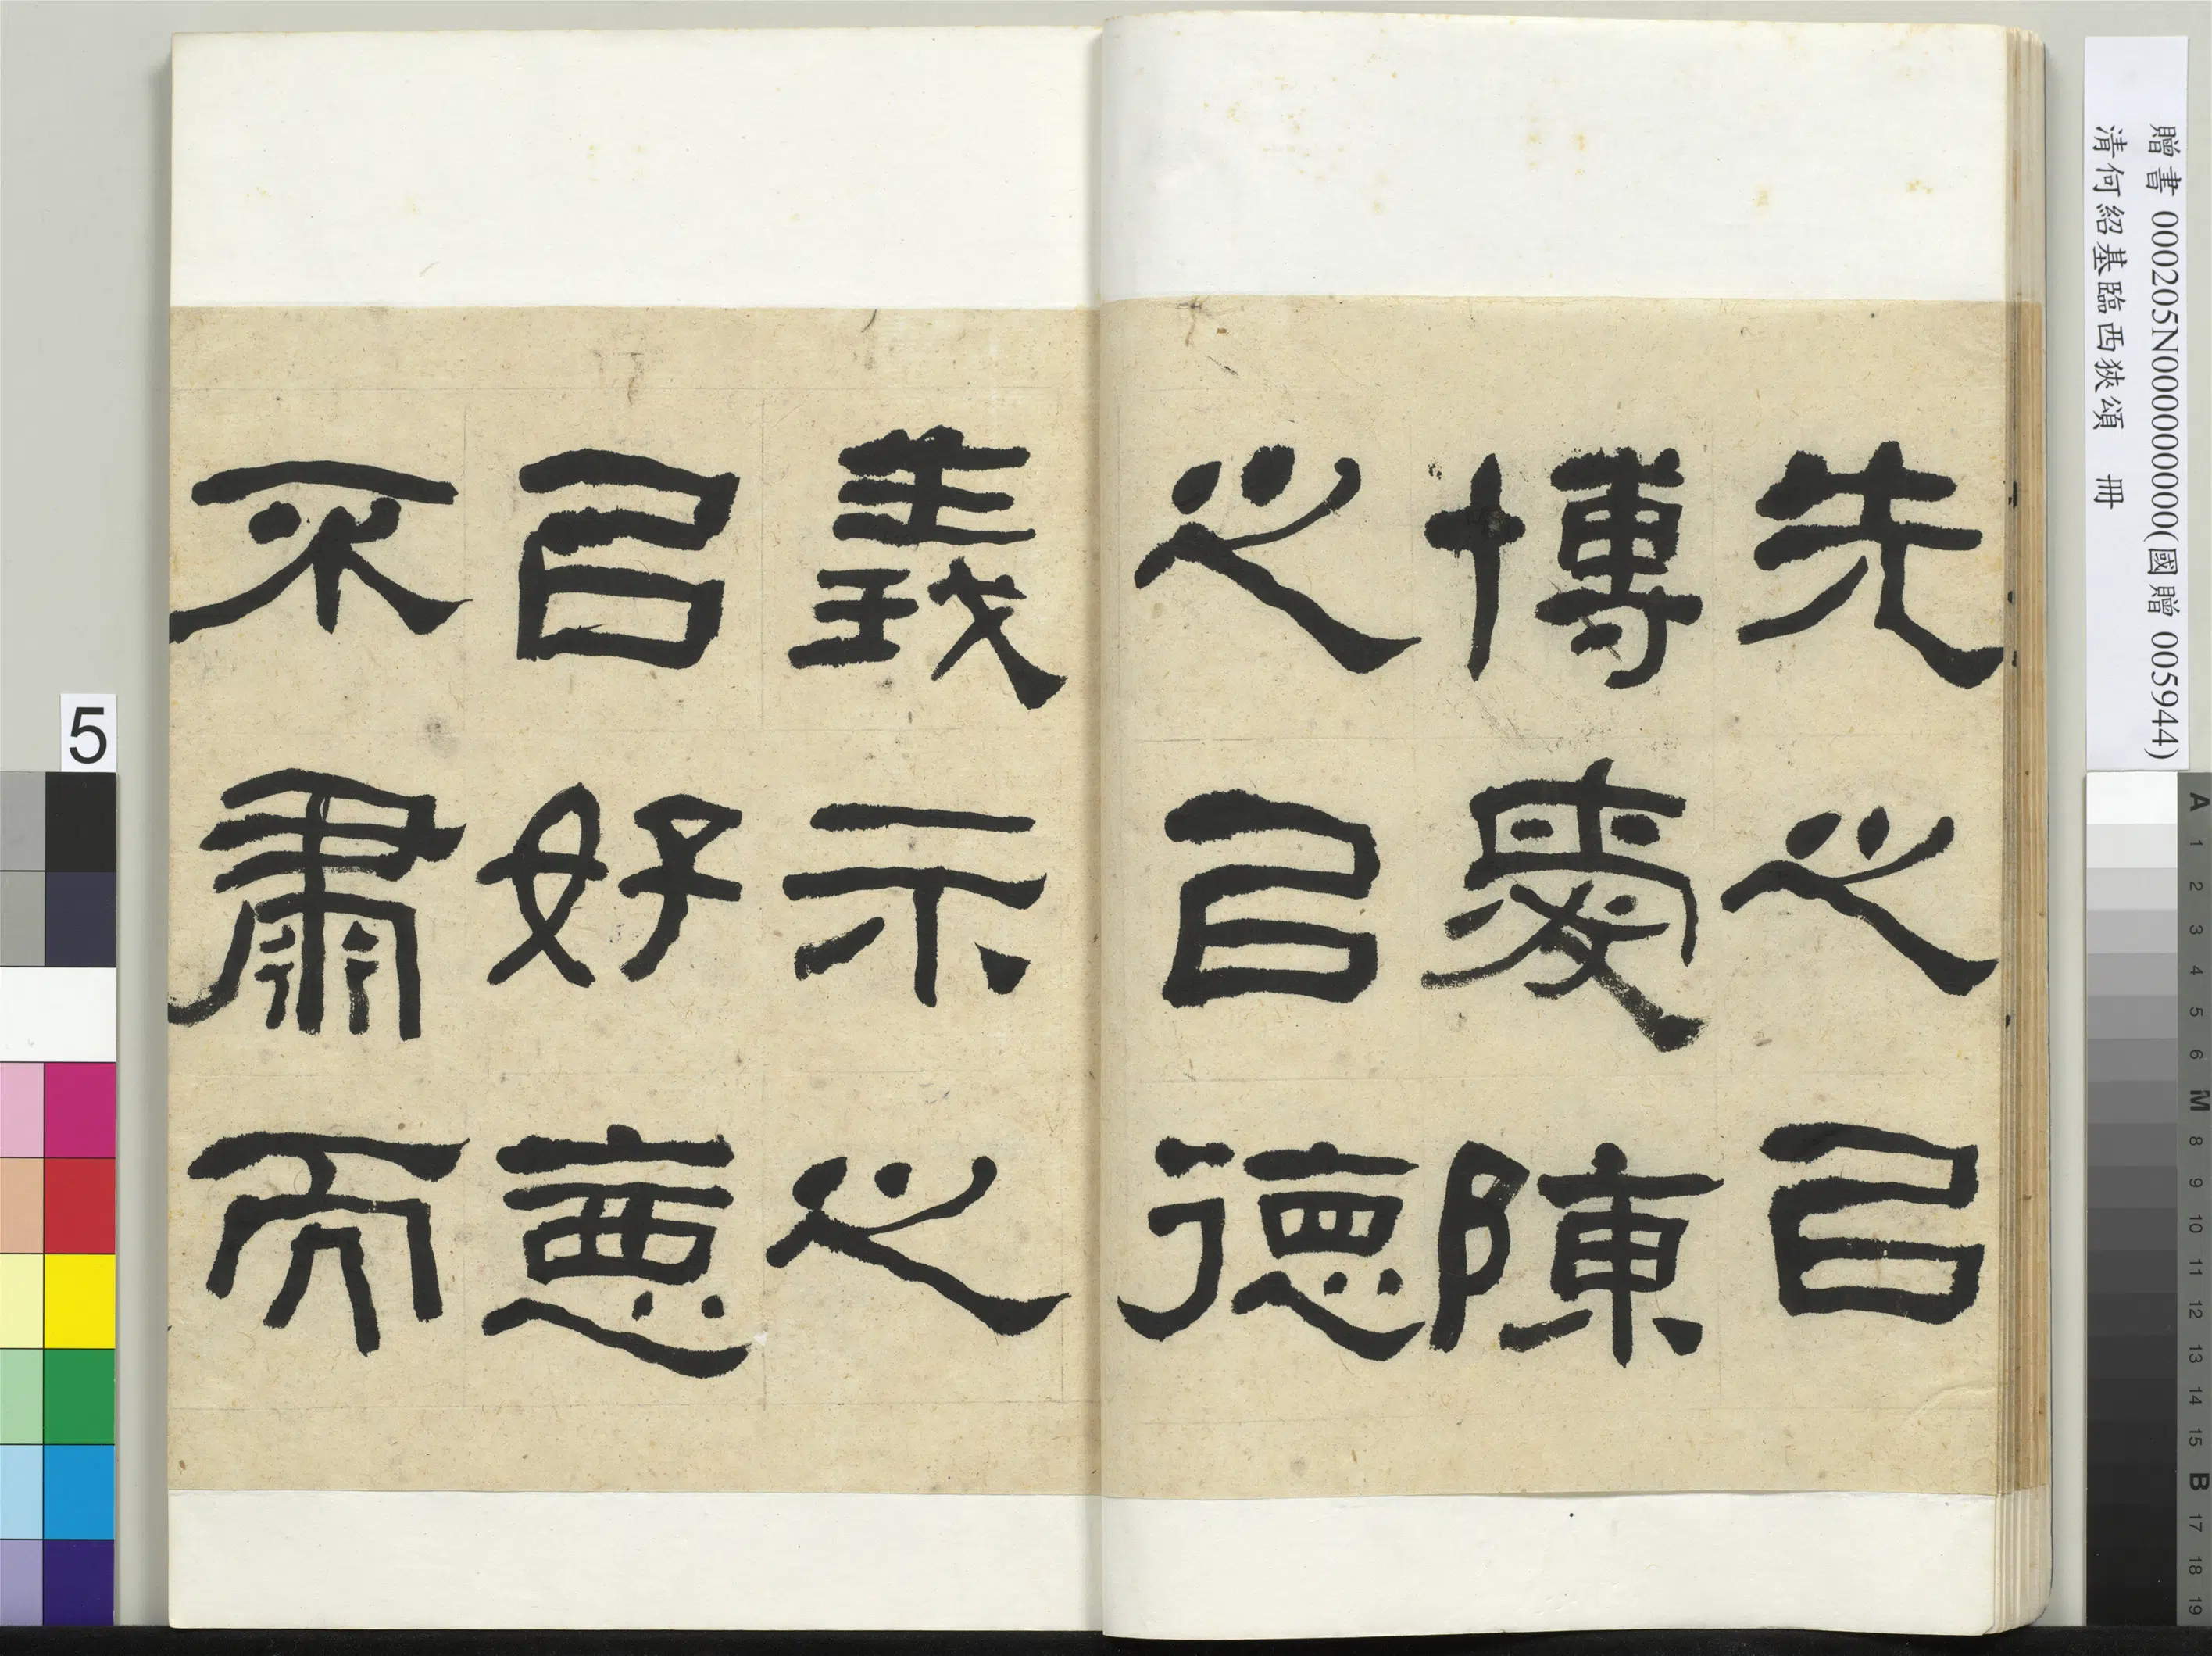 先之㠯
博愛陳
之㠯德
義示之
㠯好惡
不肅而
贈書 000205N000000000(國贈 005944)
清何紹基臨西狹頌 冊
5
A 1 2 3 4 5 6 M 8 9 10 11 12 13 14 15 B 17 18 19